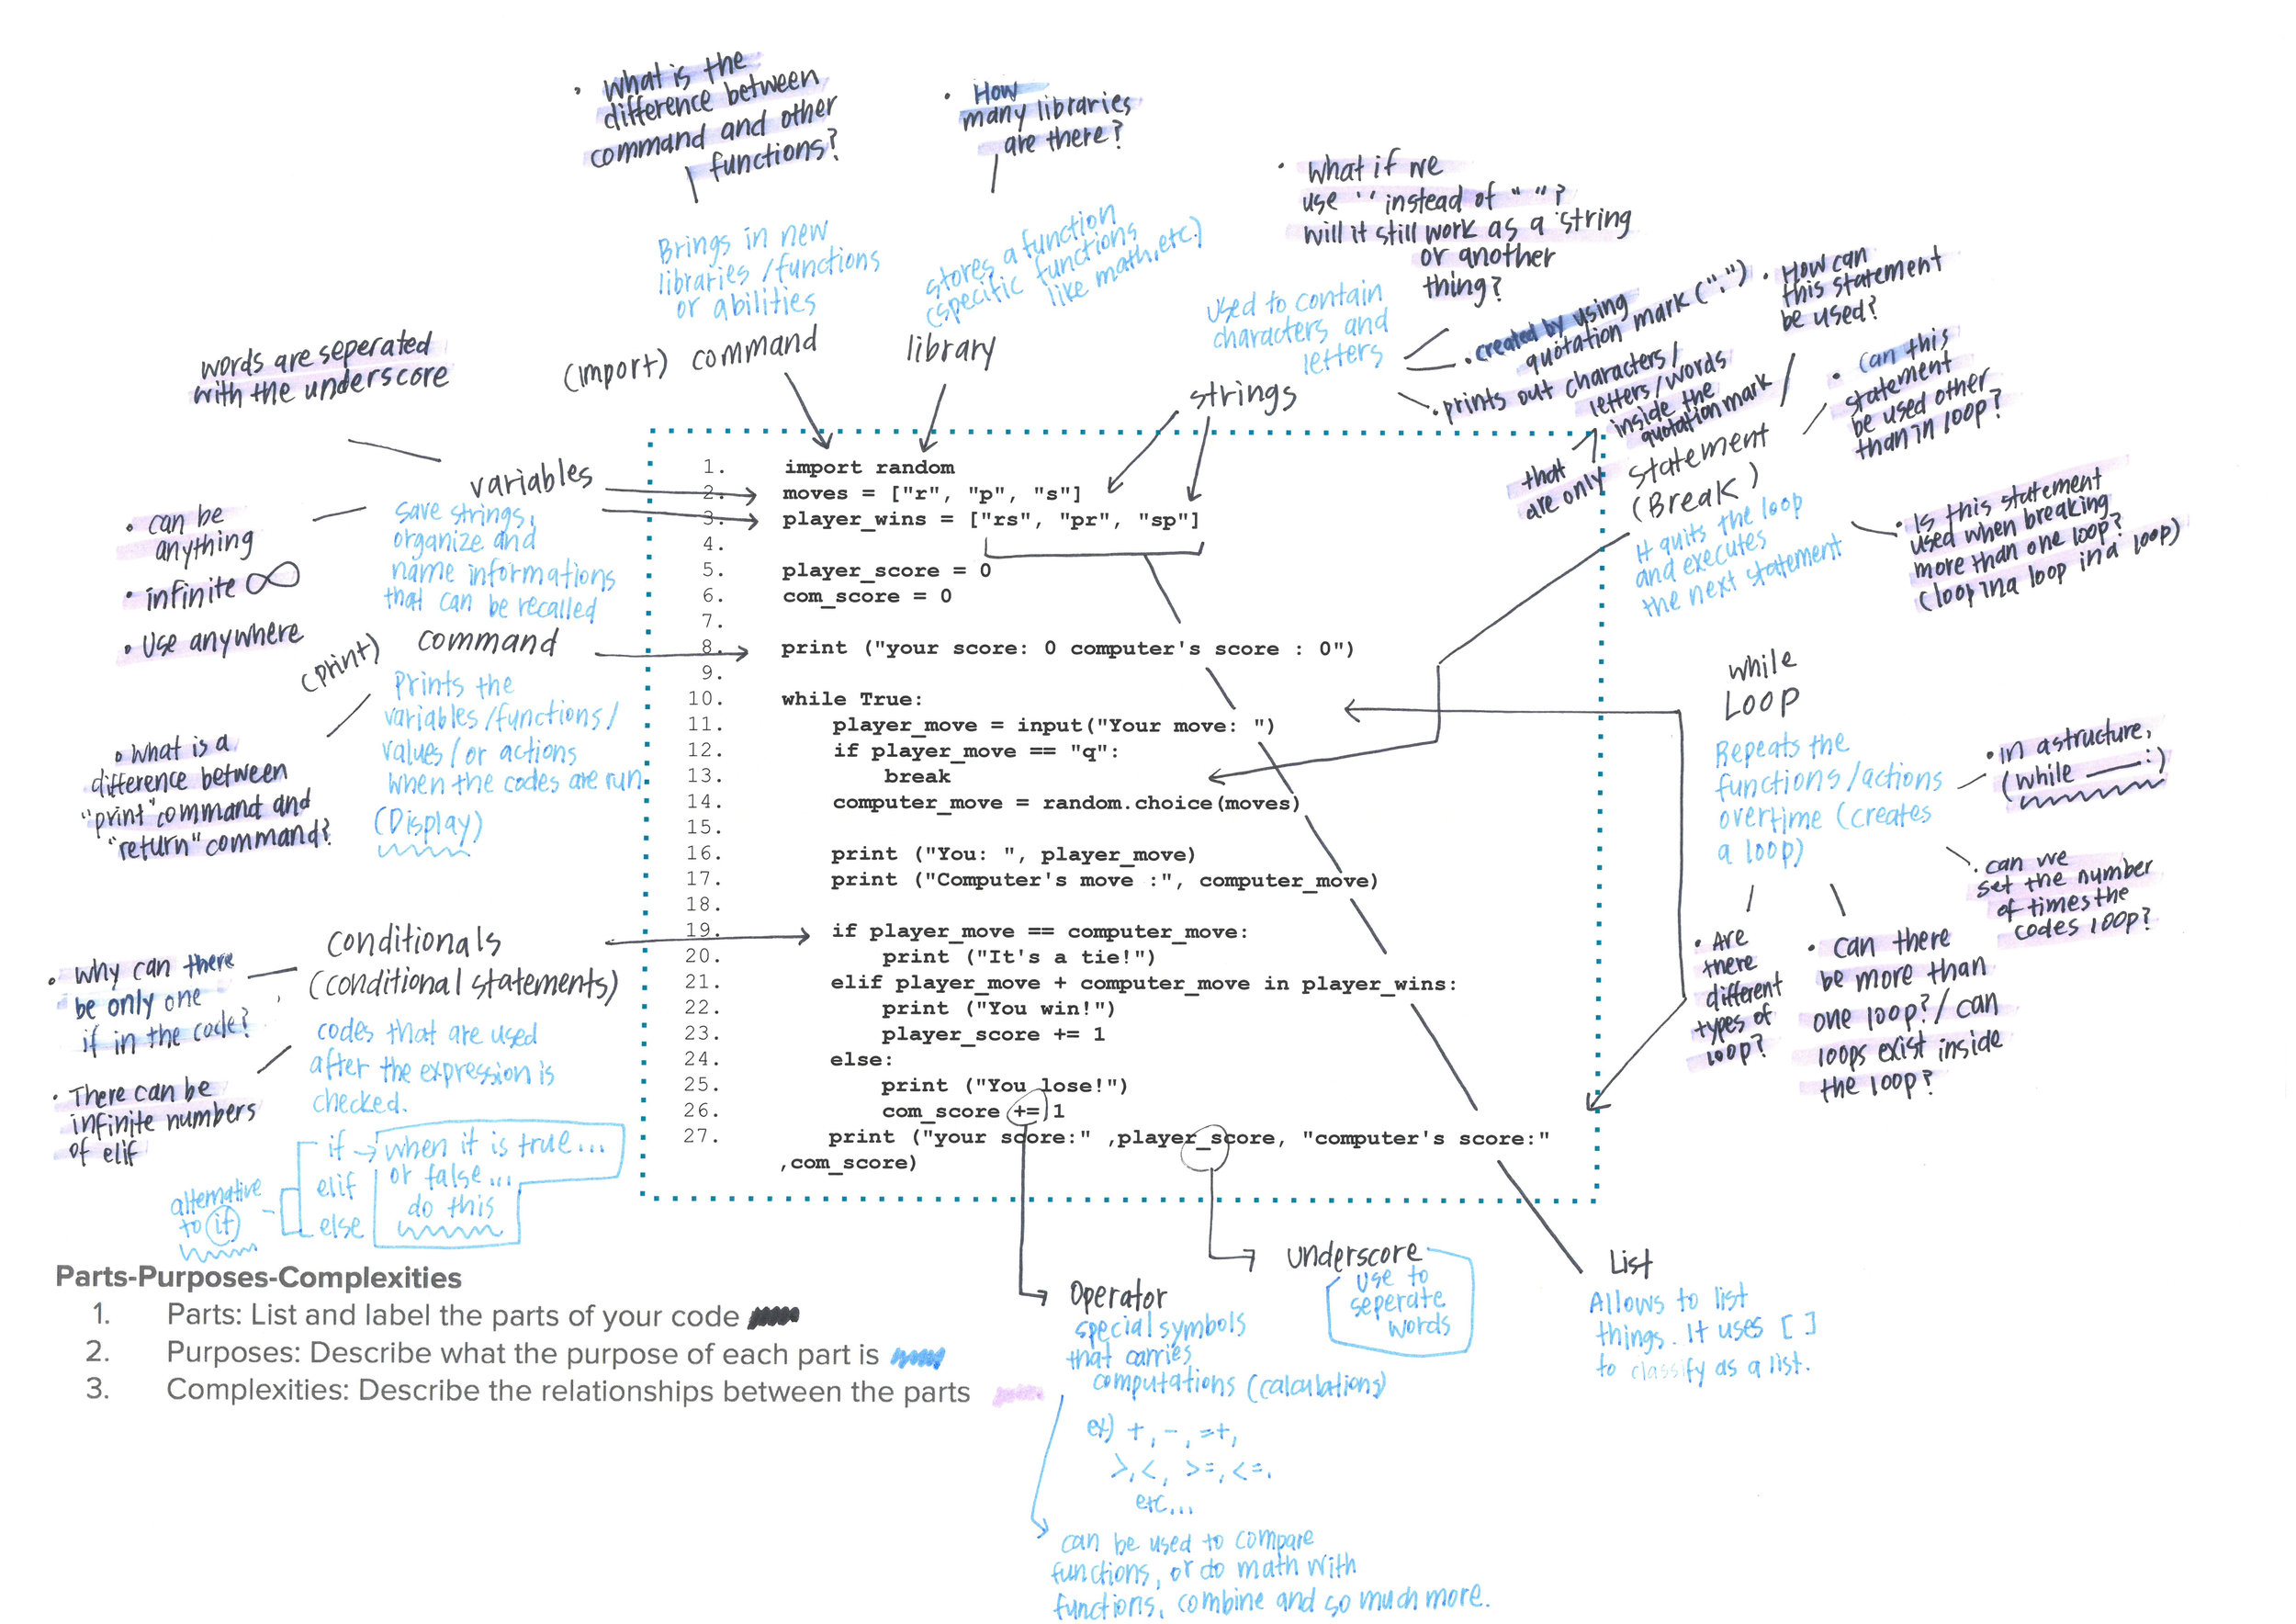 • What is the
difference between
command and other
functions?
• How
many libraries
are there?
• What if we
use ' ' instead of " "?
will it still work as a string
or another
thing?
Brings in new
libraries /functions
or abilities
stores a function
(specific functions
like math, etc.)
used to contain
characters and
letters
• created by using
quotation mark (" ")
• prints out characters/
letters/words
inside the
quotation mark
that
are only
• How can
this statement
be used?
• Can this
statement
be used other
than in loop?
words are seperated
with the underscore
(import) command
library
strings
statement
(Break)
It quits the loop
and executes
the next statement
• Is this statement
used when breaking
more than one loop?
(loop in a loop in a loop)
variables
save strings,
organize and
name informations
that can be recalled
• can be
anything
• infinite ∞
• Use anywhere
(print) command
Prints the
variables/functions/
values/or actions
when the codes are run.
(Display)
• What is a
difference between
"print" command and
"return" command?
conditionals
(conditional statements)
codes that are used
after the expression is
checked.
• Why can there
be only one
if in the code?
• There can be
infinite numbers
of elif
alternative
to if
if → when it is true...
elif or false...
else do this
1. import random
2. moves = ["r", "p", "s"]
3. player_wins = ["rs", "pr", "sp"]
4.
5. player_score = 0
6. com_score = 0
7.
8. print ("your score: 0 computer's score : 0")
9.
10. while True:
11. player_move = input("Your move: ")
12. if player_move == "q":
13. break
14. computer_move = random.choice(moves)
15.
16. print ("You: ", player_move)
17. print ("Computer's move :", computer_move)
18.
19. if player_move == computer_move:
20. print ("It's a tie!")
21. elif player_move + computer_move in player_wins:
22. print ("You win!")
23. player_score += 1
24. else:
25. print ("You lose!")
26. com_score += 1
27. print ("your score:" ,player_score, "computer's score:"
,com_score)
while
Loop
Repeats the
functions/actions
overtime (creates
a loop)
• in a structure,
(while ___:)
• can we
set the number
of times the
codes loop?
• Are
there
different
types of
loop?
• can there
be more than
one loop?/ can
loops exist inside
the loop?
Parts-Purposes-Complexities
1. Parts: List and label the parts of your code
2. Purposes: Describe what the purpose of each part is
3. Complexities: Describe the relationships between the parts
Operator
special symbols
that carries
computations (calculations)
ex) +, -, =+,
>, <, >=, <=,
etc...
can be used to compare
functions, or do math with
functions, combine and so much more.
underscore
use to
seperate
words
List
Allows to list
things. It uses [ ]
to classify as a list.